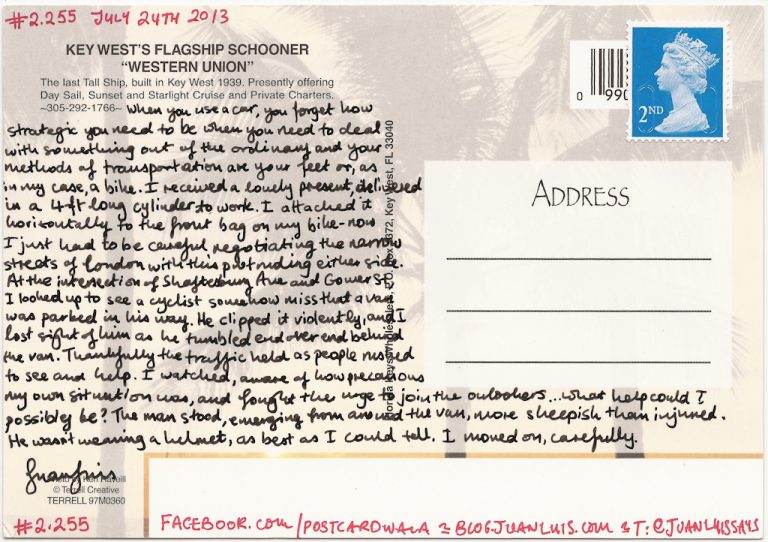 #2.255 JULY 24TH 2013
KEY WEST'S FLAGSHIP SCHOONER
"WESTERN UNION"
The last Tall Ship, built in Key West 1939. Presently offering
Day Sail, Sunset and Starlight Cruise and Private Charters.
~305-292-1766~
When you use a car, you forget how
strategic you need to be when you need to deal
with something out of the ordinary and your
methods of transportation are your feet or, as
in my case, a bike. I received a lovely present, delivered
in a 4ft long cylinder to work. I attached it
horizontally to the front bag on my bike-now
I just had to be careful negotiating the narrow
streets of London with this protruding either side.
At the intersection of Shaftesbury Ave and Gower St
I looked up to see a cyclist somehow miss that a van
was parked in his way. He clipped it violently, and I
lost sight of him as he tumbled end over end behind
the van. Thankfully the traffic held as people rushed
to see and help. I watched, aware of how precarious
my own situation was, and fought the urge to join the onlookers...what help could I
possibly be? The man stood, emerging from around the van, more sheepish than injured.
He wasn't wearing a helmet, as best as I could tell. I moved on, carefully.
Juanluis
Photo by Ron Ravelli
© Terrell Creative
TERRELL 97M0360
#2.255
Florida Keys Wholesalers, P.O. Box 372, Key West, FL 33040
0 990
2ND
ADDRESS
FACEBOOK.COM/POSTCARDWALA = BLOG.JUANLUIS.COM = T: @JUANLUISSAYS